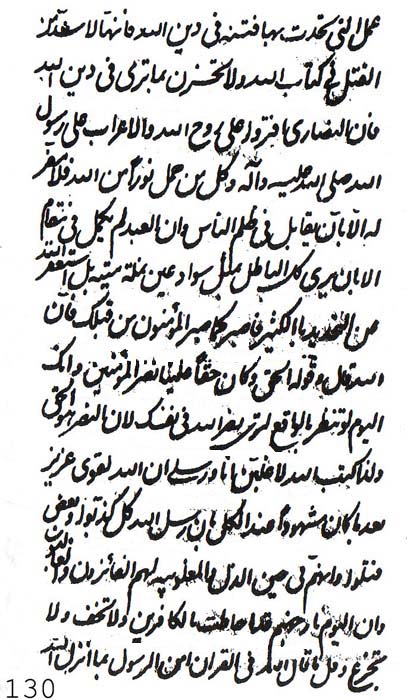 عمل التی تحدث بها فتنه فی دین الله فانها لاشد من
القتل فی کتاب الله ولا تحزن بما تری فی دین الله
فان النصاری افتروا علی روح الله والاعراب علی رسول
الله صلی الله علیه وآله وکل من حمل نوراً من الله فلا مفر
له الا بان یقابل فی ظلم الناس وان العبد لم یکمل فی مقام
الا بان یری کل الباطل مثل سواد عین نملة میتة بل استغفر الله
من التحدید بالکثیر فاصبر کما صبر المؤمنون من قبلک فان
الله قال وقوله الحق وکان حقاً علینا نصر المؤمنین وانک
الیوم لو تنظر بالواقع لتری نصر الله فی نفسک لان النصر هو الحق
ولذا کتب الله لاغلبن انا ورسلی ان الله لقوی عزیز
بعد ما کان مشهوداً عند الکل بان رسل الله کل کذبوا وبعض
قتلوا وانهم فی حین الذل والمغلوبیه لهم الفائزون
وان الیوم نار جهنم لمحاطت بالکافرین ولا تخف ولا
تجزع وقل ما قال الله فی القران امن الرسول بما انزل الله
130